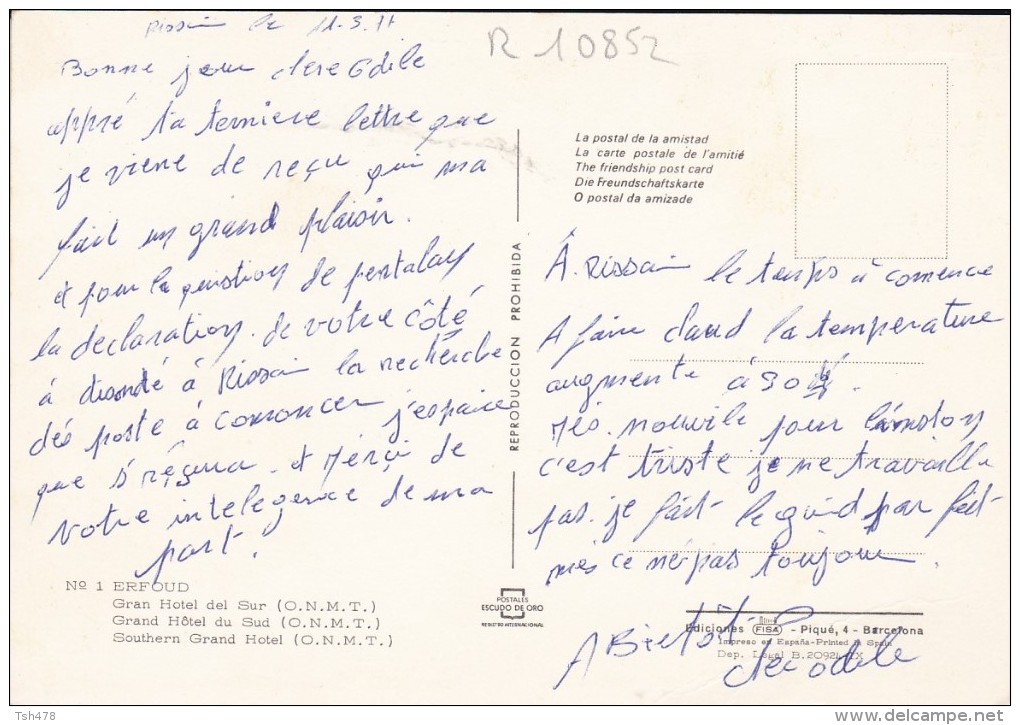 Rissani le 11-3.77
Bonne jour chere Odile
appré ta terniere lettre que
je viene de reçu qui ma
fait un grand plaisir.
et pour la quistion de pentalay
la declaration. de votre côté
à à Rissani la recherche
dés poste à comoncer j'espaire
que s'réçura. et Mérçi de
votre intelegence de ma
part.
Nº 1 ERFOUD
Gran Hotel del Sur (O.N.M.T.)
Grand Hôtel du Sud (O.N.M.T.)
Southern Grand Hotel (O.N.M.T.)
REPRODUCCION PROHIBIDA
POSTALES
ESCUDO DE ORO
REGISTRO INTERNACIONAL
R 10852
La postal de la amistad
La carte postale de l'amitié
The friendship post card
Die Freundschaftskarte
O postal da amizade
Â. Rissani le temps à comence
A faire chaud la température
augmente à 30
Més. nouvile pour l'inston
c'est triste je ne travaille
pas. je fait le guid par fait
més ce né pas toujour
A Bientôt
chere odile
Ediciones FISA - Piqué, 4 - Barcelona
Impreso en España-Printed in Spain
Dep. Legal B. 20924-IX
Tsh478
delcampe.net